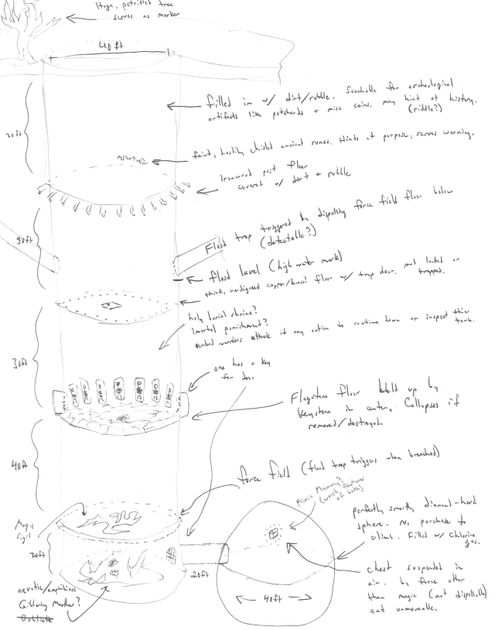 Huge, petrified tree
serves as marker
40ft
filled in w/ dirt/rubble. Searchable for archeological
artifacts like potsherds + misc coins. may hint at history.
(riddle?)
30ft
faint, hastily chisled ancient runes. Hints at purpose, serves warning.
Ironwood post floor
covered w/ dirt + rubble
Flood trap triggered by dispelling force field floor below
(detectable?)
30ft
flood level (high water mark)
thick, verdigreed copper/bronze floor w/ trap door. not locked or
trapped.
holy burial shrine?
immortal punishment?
undead warders attack if any action to continue down or inspect their
tombs.
30ft
one has a key
for door
Flagstone floor held up by
keystone in center. Collapses if
removed/destroyed.
40ft
force field (flood trap triggers when breached)
Magic
Sigil
Mimic Mummy?
(worst features
of both)
perfectly smooth diamond-hard
sphere. No purchase to
climb. Filled w/ chlorine
gas.
30ft
20ft
40ft
chest suspended in
air. by force other
than magic (not dispellable)
and unmoveable.
aquatic/amphibious
Guardian Monster?